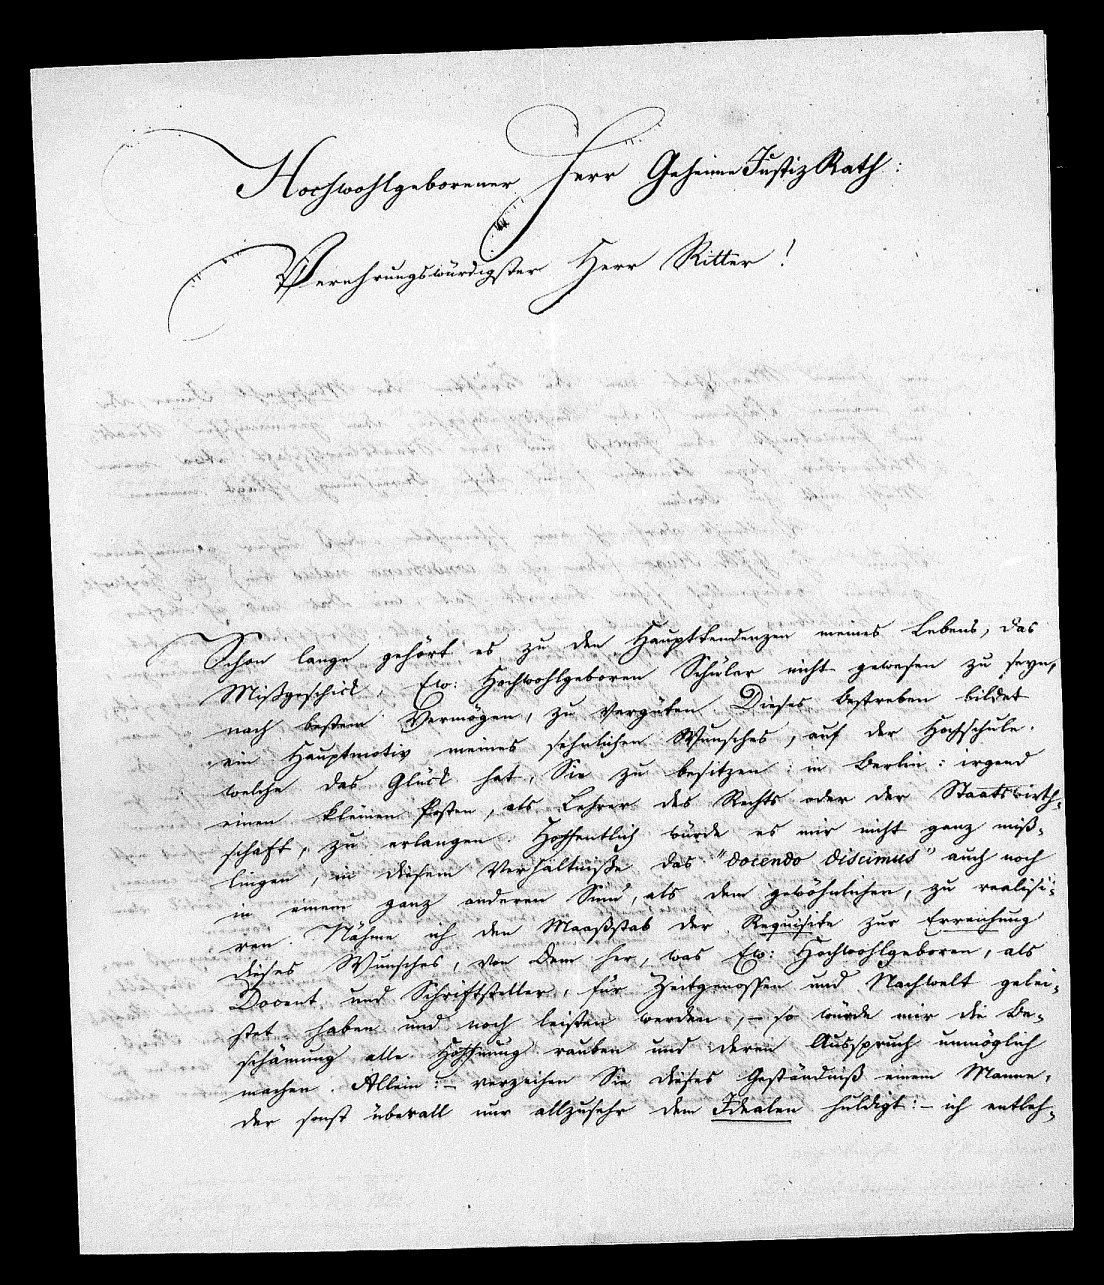 Hochwohlgeborener Herr Geheime Justiz Rath:
Verehrungswürdigster Herr Ritter!
Schon lange gehört es zu den Haupttendenzen meines Lebens, das
Mißgeschick, Ew: Hochwohlgeboren Schüler nicht gewesen zu seyn,
nach bestem Vermögen, zu vergüten. Dieses Bestreben bildet
ein Hauptmotiv meines sehnlichen Wunsches, auf der Hochschule,
welche das Glück hat, Sie zu besitzen: in Berlin: irgend
einen kleinen Posten, als Lehrer des Rechts oder der Staatswirth-
schaft, zu erlangen. Hoffentlich würde es mir nicht ganz miß-
lingen, in diesem Verhältniße das "docendo discimus" auch noch
in einem ganz anderen Sinn, als dem gewöhnlichen, zu realisi-
ren. Nähme ich den Maaßstab der Requisite zur Erreichung
dieses Wunsches, von dem her, was Ew: Hochwohlgeboren, als
Docent und Schriftsteller, für Zeitgenossen und Nachwelt gelei-
stet haben und noch leisten werden, – so würde mir die Be-
schämung alle Hoffnung rauben und deren Ausspruch unmöglich
machen. Allein: – verzeihen Sie dieses Geständniß einem Manne,
der sonst überall nur allzusehr dem Idealen huldigt: – ich entleh-